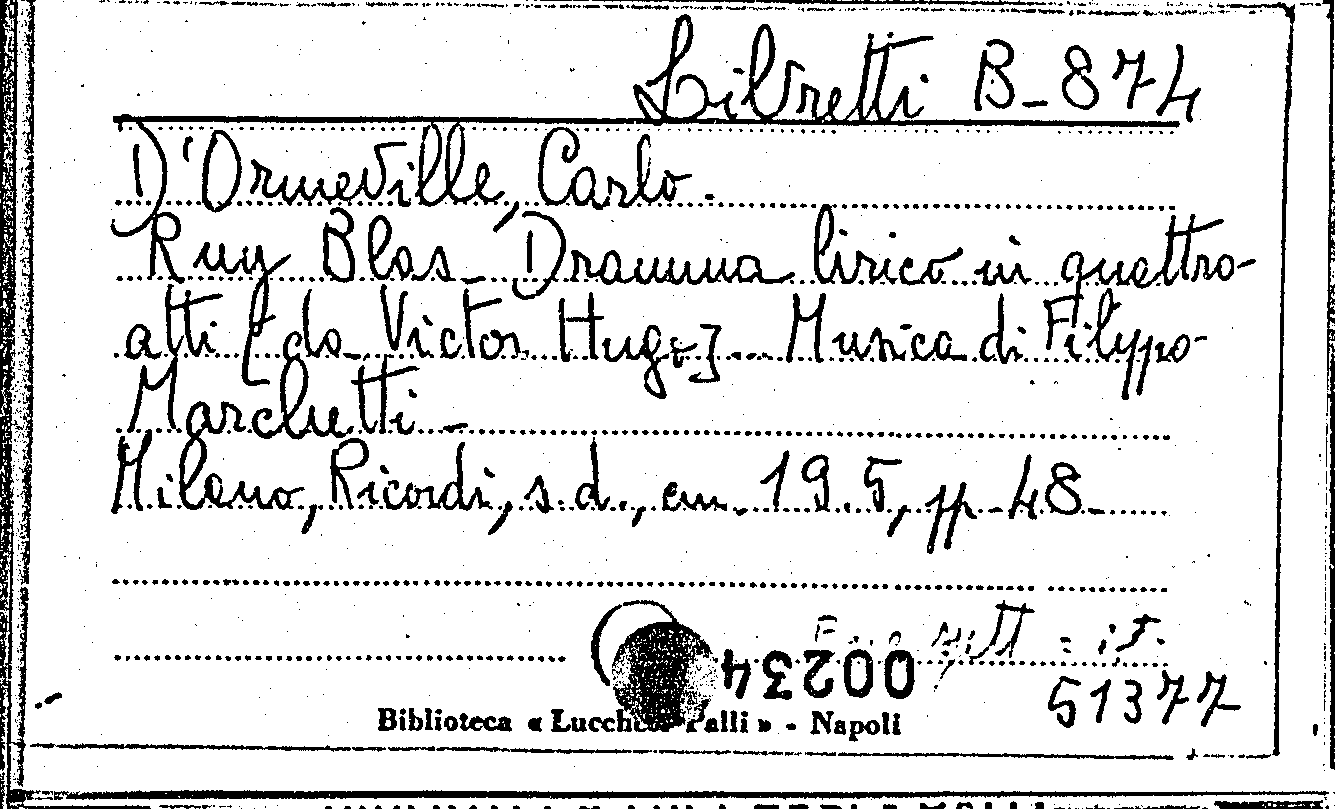 Libretti B-874
D'Ormeville, Carlo.
Ruy Blas - Dramma lirico in quattro
atti [da Victor Hugo] - Musica di Filippo
Marchetti -
Milano, Ricordi, s.d., cm. 19.5, pp. 48 -
00234
51377
Biblioteca « Lucchesi Palli » - Napoli